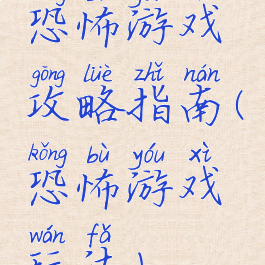 恐怖游戏
gōng lüè zhǐ nán
攻略指南(
kǒng bù yóu xì
恐怖游戏
wán fǎ